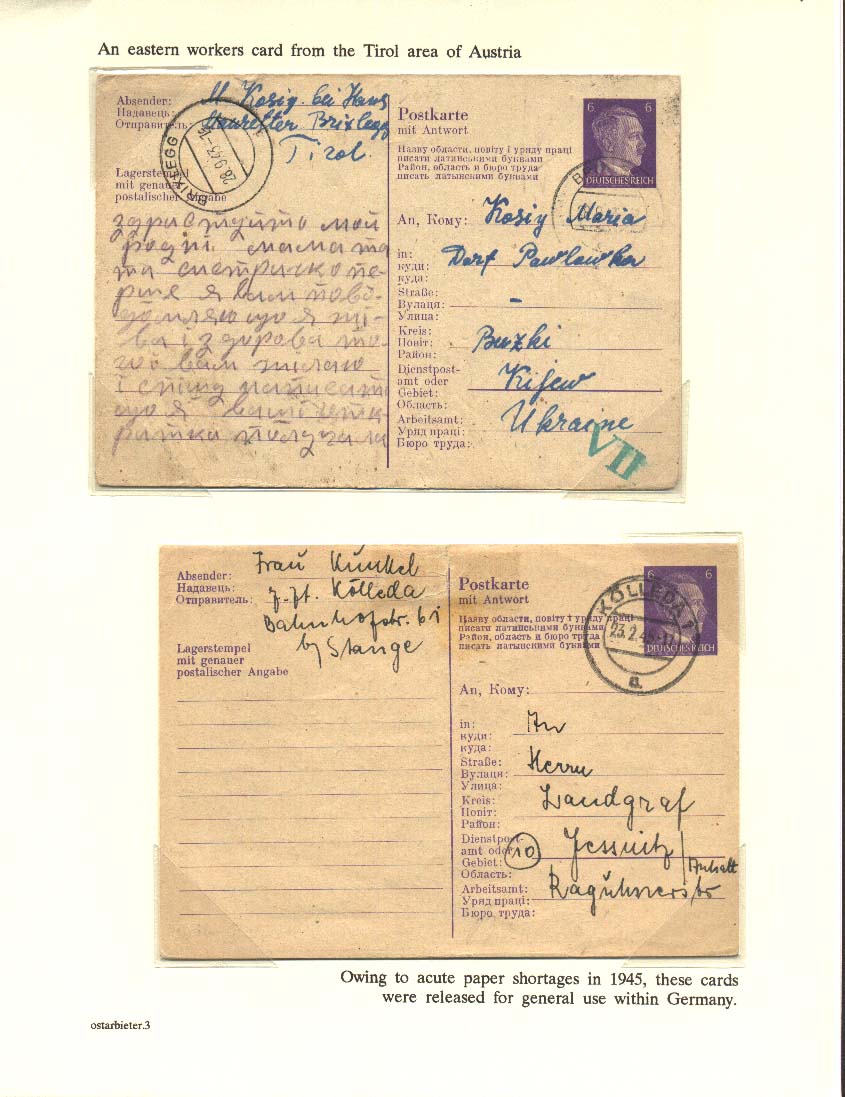 An eastern workers card from the Tirol area of Austria
Absender: M. Kosig bei Hans
Надавець:
Отправитель: Brixlegg
Tirol.
BRIXLEGG
28.9.43
Lagerstempel
mit genauer
postalischer Angabe
мой
мама та
та
я вам пові-
домляю що я жи-
ва і здорова то-
го вам желаю
і спішу написат
що я ваші
получала
Postkarte
mit Antwort
Назву области, повіту і уряду праці
писати латинськими буквами
Район, область и бюро труда
писать латынскими буквами
6 6
DEUTSCHES REICH
An, Кому: Kosig Maria
in: Dorf Pawlowka
куди:
куда:
Straße: -
Вулаця:
Улица:
Kreis: Buzki
Повіт:
Район:
Dienstpost- Kijew
amt oder
Gebiet:
Область:
Arbeitsamt: Ukraine
Уряд праці:
Бюро труда:
VII
Absender: Frau Kunkel
Надавець: z. Zt. Kölleda
Отправитель: Bahnhofstr. 61
by Stange
Lagerstempel
mit genauer
postalischer Angabe
Postkarte
mit Antwort
Назву области, повіту і уряду праці
писати латинськими буквами
Район, область и бюро труда
писать латынскими буквами
6 6
DEUTSCHES REICH
KÖLLEDA
23.2.45
a
An, Кому:
in: An
куди:
куда:
Straße: Herrn
Вулаця:
Улица:
Kreis: Landgraf
Повіт:
Район:
Dienstpost-
amt oder 10 Jessnitz
Gebiet: Anhalt
Область:
Arbeitsamt: Raguhnerstr
Уряд праці:
Бюро труда:
Owing to acute paper shortages in 1945, these cards
were released for general use within Germany.
ostarbieter.3